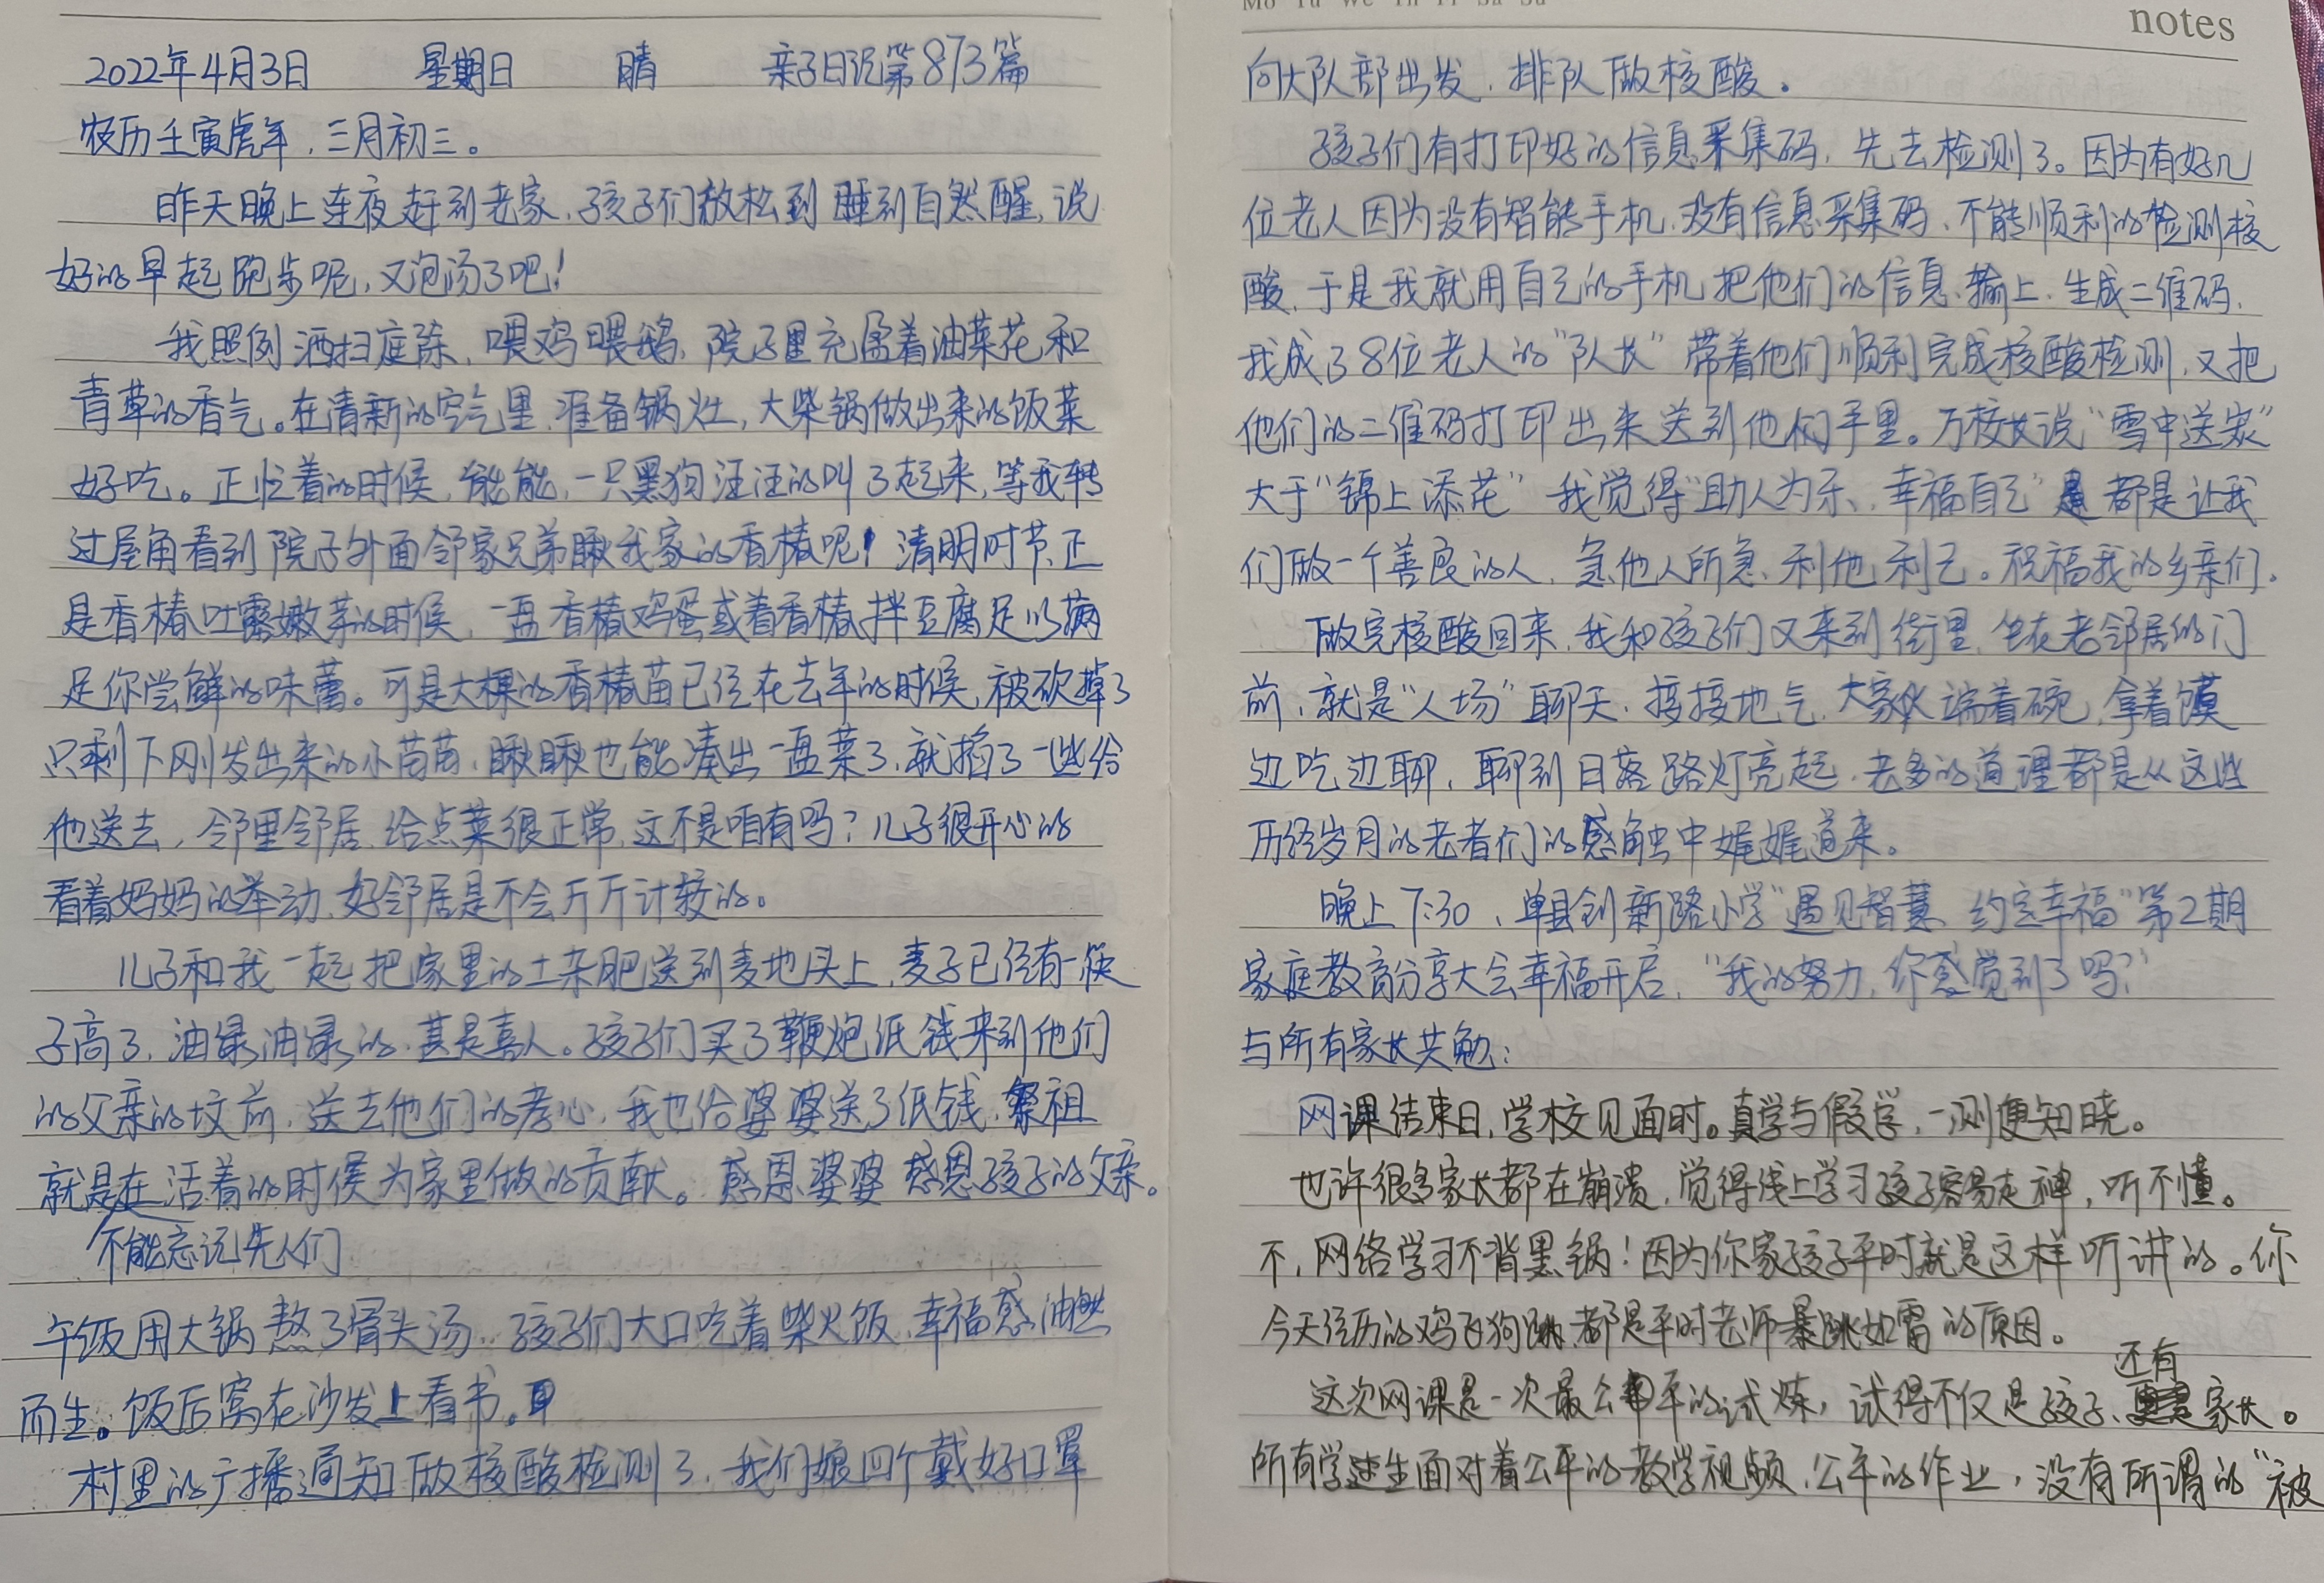 2022年4月3日 星期日 晴 亲子日记第873篇
农历壬寅虎年，三月初三。
昨天晚上连夜赶到老家，孩子们放松到睡到自然醒，说
好的早起跑步呢，又泡汤了吧！
我照例洒扫庭除，喂鸡喂鹅，院子里充盈着油菜花和
青草的香气。在清新的空气里，准备锅灶，大柴锅做出来的饭菜
好吃。正忙着的时候，能能，一只黑狗汪汪的叫了起来，等我转
过屋角看到院子外面邻家兄弟瞅我家的香椿呢！清明时节，正
是香椿吐露嫩芽的时候，一盘香椿鸡蛋或着香椿拌豆腐足以满
足你尝鲜的味蕾。可是大棵的香椿苗已经在去年的时候，被砍掉了
只剩下刚发出来的小苗苗，瞅瞅也能凑出一盘菜了，就掐了一些给
他送去，邻里邻居，给点菜很正常，这不是咱有吗？儿子很开心的
看着妈妈的举动，好邻居是不会斤斤计较的。
儿子和我一起把家里的土杂肥送到麦地头上，麦子已经有一筷
子高了，油绿油绿的，甚是喜人。孩子们买了鞭炮纸钱来到他们
的父亲的坟前，送去他们的孝心，我也给婆婆送了纸钱，祭祖
就是在活着的时候为家里做的贡献。感恩婆婆 感恩孩子的父亲。
不能忘记先人们
午饭用大锅熬了骨头汤，孩子们大口吃着柴火饭，幸福感油然
而生。饭后窝在沙发上看书。
村里的广播通知做核酸检测了，我们娘四个戴好口罩
notes
向大队部出发，排队做核酸。
孩子们有打印好的信息采集码，先去检测了。因为有好几
位老人因为没有智能手机，没有信息采集码，不能顺利的检测核
酸，于是我就用自己的手机把他们的信息输上，生成二维码，
我成了8位老人的“队长”带着他们顺利完成核酸检测，又把
他们的二维码打印出来送到他们手里。万校长说“雪中送炭”
大于“锦上添花”我觉得“助人为乐、幸福自己”都是让我
们做一个善良的人，急他人所急，利他利己。祝福我的乡亲们。
做完核酸回来，我和孩子们又来到街里，坐在老邻居的门
前，就是“人场”聊天，接接地气，大家伙端着碗，拿着馍
边吃边聊，聊到日落路灯亮起，老多的道理都是从这些
历经岁月的老者们的感触中娓娓道来。
晚上7:30，单县创新路小学“遇见智慧、约定幸福”第2期
家庭教育分享大会幸福开启，“我的努力，你感觉到了吗？”
与所有家长共勉：
网课结束日，学校见面时。真学与假学，一测便知晓。
也许很多家长都在崩溃，觉得线上学习孩子容易走神，听不懂。
不，网络学习不背黑锅！因为你家孩子平时就是这样听讲的。你
今天经历的鸡飞狗跳，都是平时老师暴跳如雷的原因。
这次网课是一次最公平的试炼，试得不仅是孩子、还有家长。
所有学生面对着公平的教学视频，公平的作业，没有所谓的“被